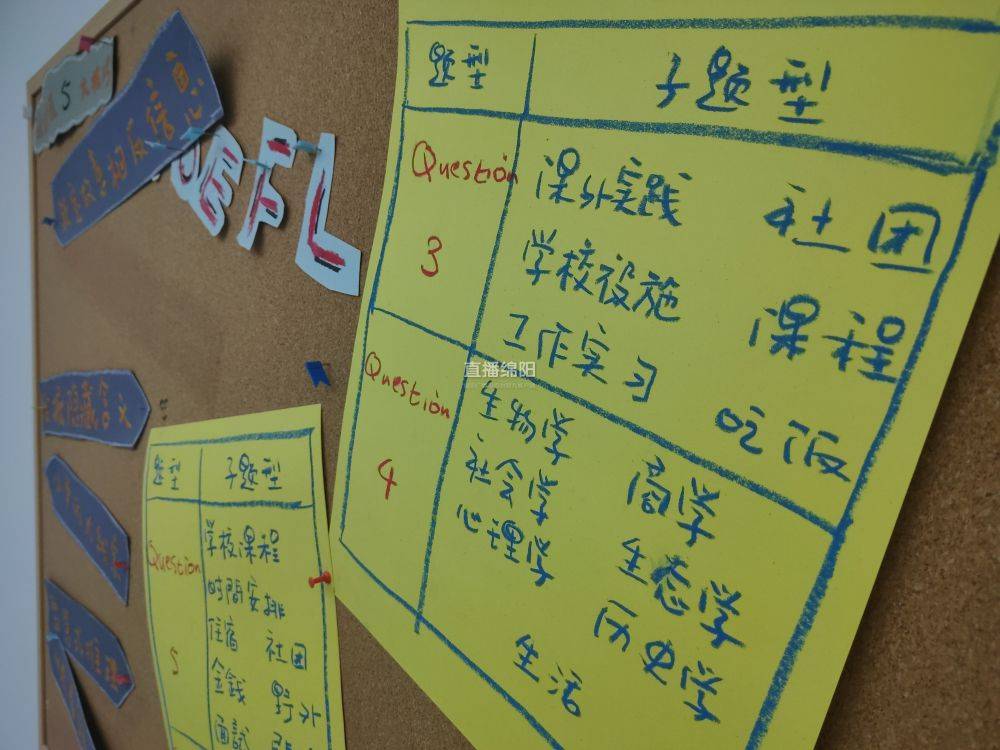 题型 子题型
Question 3
课外实践 社团
学校设施 课程
工作实习 吃饭
Question 4
生物学 商学
社会学 生态学
心理学 历史学
生活
直播绵阳
OEFL
5
题型 子题型
Question 5
学校课程
时間安排
住宿 社団
金銭 野外
面試
隐藏含义